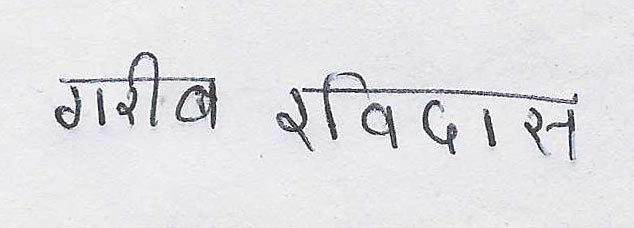 गरीब रविदास